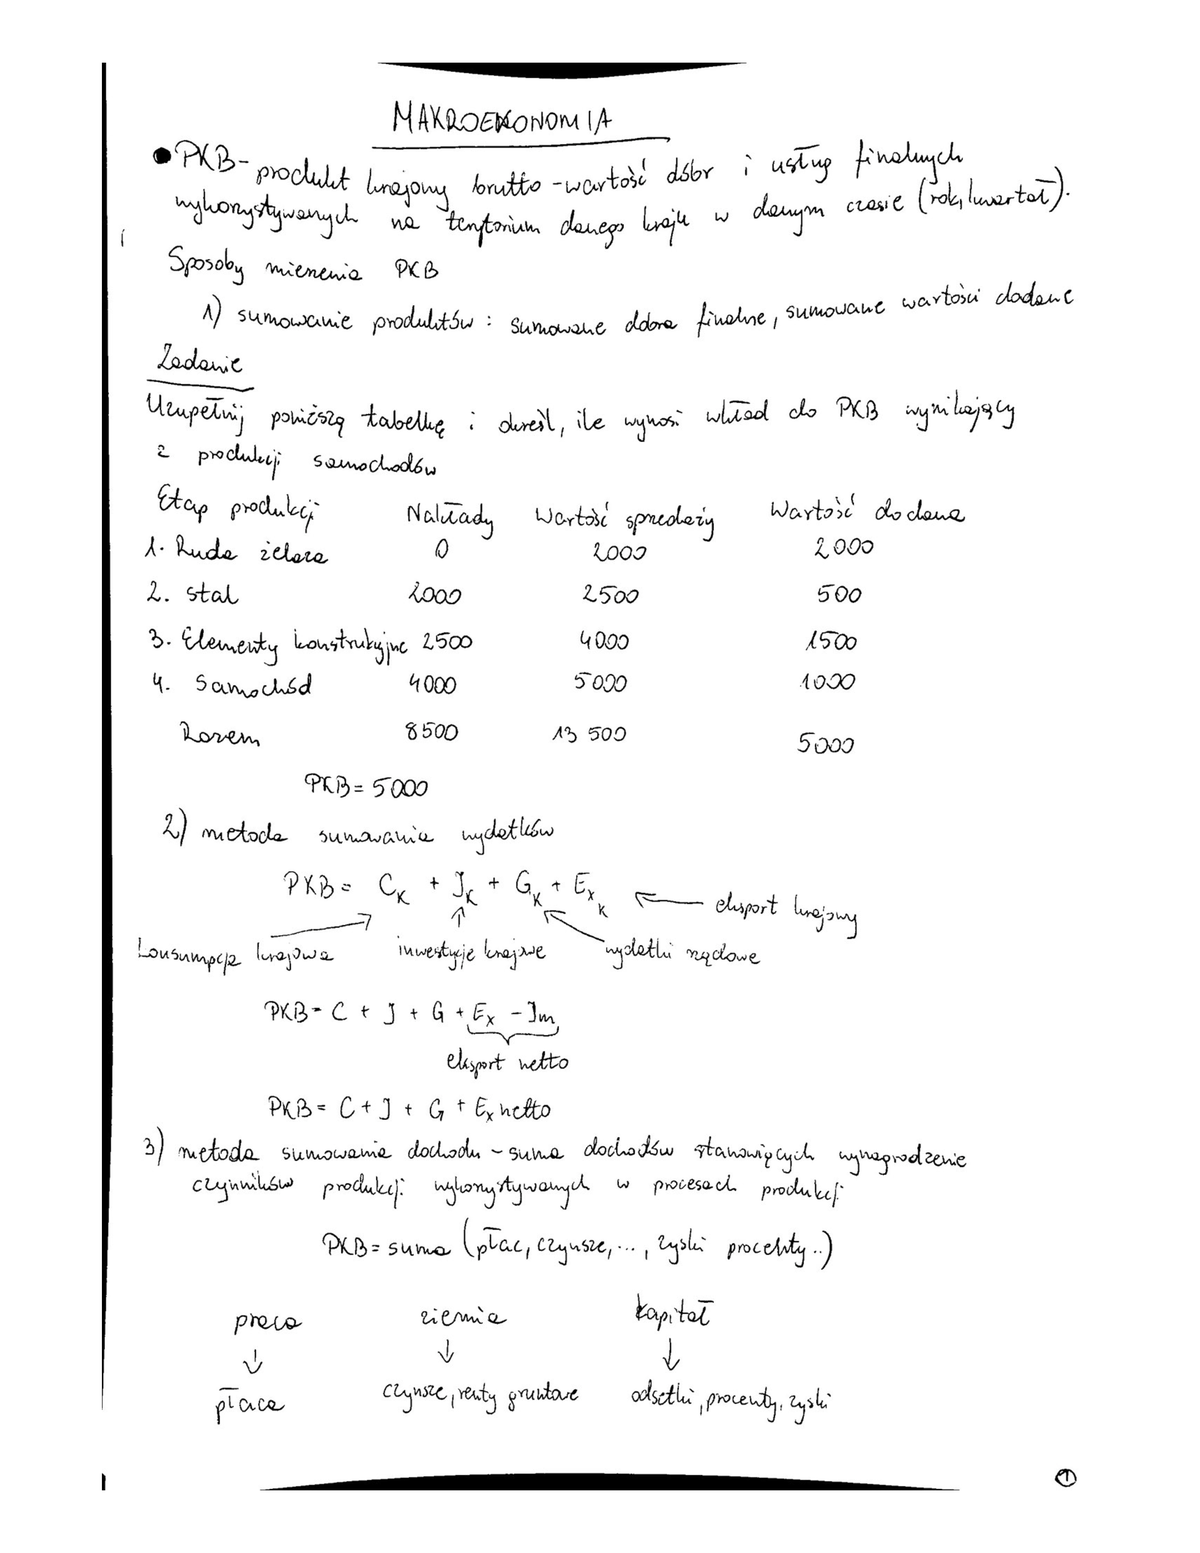 MAKROEKONOMIA
• PKB - produkt krajowy brutto - wartość dóbr i usług finalnych
wykorzystywanych na terytorium danego kraju w danym czasie (rok, kwartał).
Sposoby mierzenia PKB
1) sumowanie produktów : sumowane dobra finalne, sumowane wartości dodane
Zadanie
Uzupełnij poniższą tabelkę i określ, ile wynosi wkład do PKB wynikający
z produkcji samochodów
Etap produkcji Nakłady Wartość sprzedaży Wartość dodana
1. Ruda żelaza 0 2000 2000
2. stal 2000 2500 500
3. Elementy konstrukcyjne 2500 4000 1500
4. Samochód 4000 5000 1000
Razem 8500 13 500 5000
PKB = 5000
2) metoda sumowania wydatków
PKB = C_K + I_K + G_K + Ex_K ← eksport krajowy
konsumpcja krajowa inwestycje krajowe wydatki rządowe
PKB = C + I + G + Ex - Im
eksport netto
PKB = C + I + G + Ex netto
3) metoda sumowania dochodu - suma dochodów stanowiących wynagrodzenie
czynników produkcji wykorzystywanych w procesach produkcji
PKB = suma (płac, czynsze, ..., zyski procenty ..)
praca ziemia kapitał
↓ ↓ ↓
płaca czynsze, renty gruntowe odsetki, procenty, zyski
1